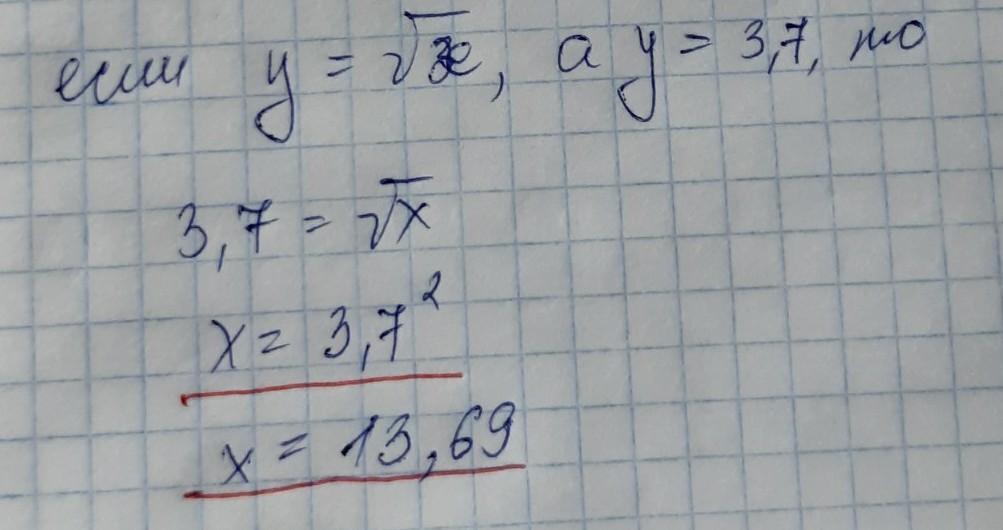 если y = √x, а y = 3,7, то
3,7 = √x
x = 3,7²
x = 13,69